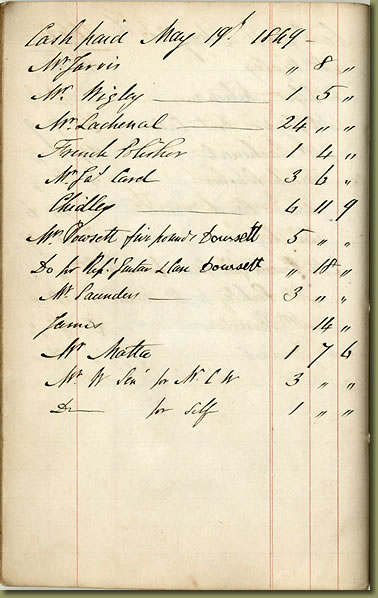 Cash paid May 19th 1849 -
Mr Jarvis " 8 "
Mr. Wigley — 1 5 "
Mr Lachenal — 24 " "
French Polisher 1 4 "
Mr Card 3 6 "
Chidley — 6 11 9
Mr Dowsett five pounds Dowsett 5 " "
Do for Guitar & Case Dowsett " 18 "
Mr Saunders — 3 " "
James 14 "
Mr Matta 1 7 6
Mr W Senr for Mr. C W 3 " "
Do — for self 1 " "